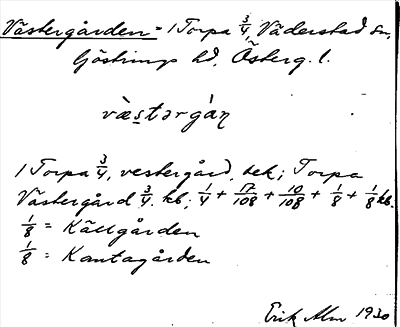 Västergården = 1 Torpa 3/4, Väderstad sn,
Göstrings hd, Österg. l.
väs̲tərgàɳ
1 Torpa 3/4, vestergård, bek; Torpa
Västergård 3/4. kb; 1/4 + 17/108 + 10/108 + 1/8 + 1/8 kb.
1/8 = Källgården
1/8 = Kantagården
Erik Alm 1930